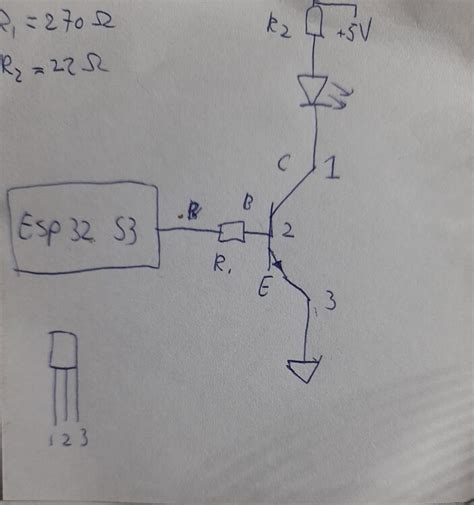 R₁ = 270 Ω
R₂ = 22 Ω
R₂
+5V
C 1
B
ESP 32 S3
2
R₁
E
3
1 2 3